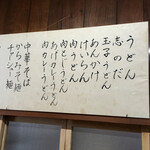 うどん
志のだ
玉子うどん
あんかけ
けいらん
肉うどん
肉とじうどん
あげカレーうどん
肉カレーうどん
中華そば
からみそ麺
チャシュー麺